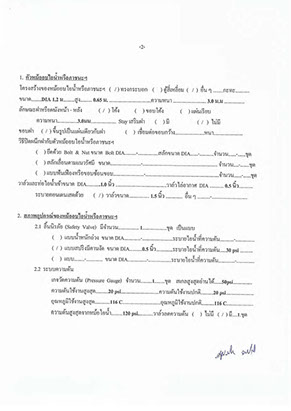 -2-
1. ตัวหม้ออบไอน้ำหรือภาชนะฯ
โครงสร้างของหม้ออบไอน้ำหรือภาชนะฯ ( / ) ทรงกระบอก ( ) ตู้สี่เหลี่ยม ( / ) อื่น ๆ
ขนาด.......DIA 1.2 ม.......สูง.......0.65 ม.......ความหนา.......3.0 ม.ม
ลักษณะฝาหรือผนังหน้า - หลัง ( / ) โค้ง ( ) ขอบโค้ง ( ) แผ่นเรียบ
ความหนา.......3.0mm....... Stay เสริมฝา ( ) มี ( / ) ไม่มี
ขอบฝา ( / ) ขึ้นรูปเป็นแผ่นเดียวกับฝา ( ) เชื่อมต่อขอบกว้าง.......หนา.......
วิธีปิดผนึกฝากับตัวหม้ออบไอน้ำหรือภาชนะฯ
( ) ยึดด้วย Bolt & Nut ขนาด Bolt DIA.......-.......สลักขนาด DIA.......-.......จำนวน.......-.......ชุด
( ) สลักเลื่อนตามแนวรัศมี ขนาด.......จำนวน.......ชุด
( ) แบบฟันเฟืองหรือขบซ้อนขอบ.......จำนวน.......-.......ชุด
วาล์วและท่อไอน้ำเข้าขนาด DIA.......1.0 นิ้ว.......วาล์วไล่อากาศ DIA.......0.5 นิ้ว
ระบายคอนเดนเสทด้วย ( / ) วาล์วขนาด.......1.5 นิ้ว.......อื่น ๆ.......-
2. สภาพอุปกรณ์ของหม้ออบไอน้ำหรือภาชนะฯ
2.1 ลิ้นนิรภัย (Safety Valve) มีจำนวน.......1.......ชุด เป็นแบบ
( ) แบบน้ำหนักถ่วง ขนาด DIA.......-.......ระบายไอน้ำที่ความดัน.......-
( / ) แบบสปริงมีคานงัด ขนาด DIA.......0.5 นิ้ว.......ระบายไอน้ำที่ความดัน.......30 psi
( ) แบบ.......-.......ขนาด DIA.......-.......ระบายไอน้ำที่ความดัน
2.2 ระบบความดัน
เกจวัดความดัน (Pressure Gauge) จำนวน.......1.......ชุด สเกลสูงสุดอ่านได้.......50psi
ความดันใช้งานสูงสุด.......20 psi.......ความดันใช้งานปกติ.......20 psi
อุณหภูมิใช้งานสูงสุด.......116 C.......อุณหภูมิใช้งานปกติ.......116 C
ความดันสูงสุดจากหม้อไอน้ำ.......120 psi.......วาล์วลดความดัน ( ) ไม่มี ( / ) มี...1.ชุด